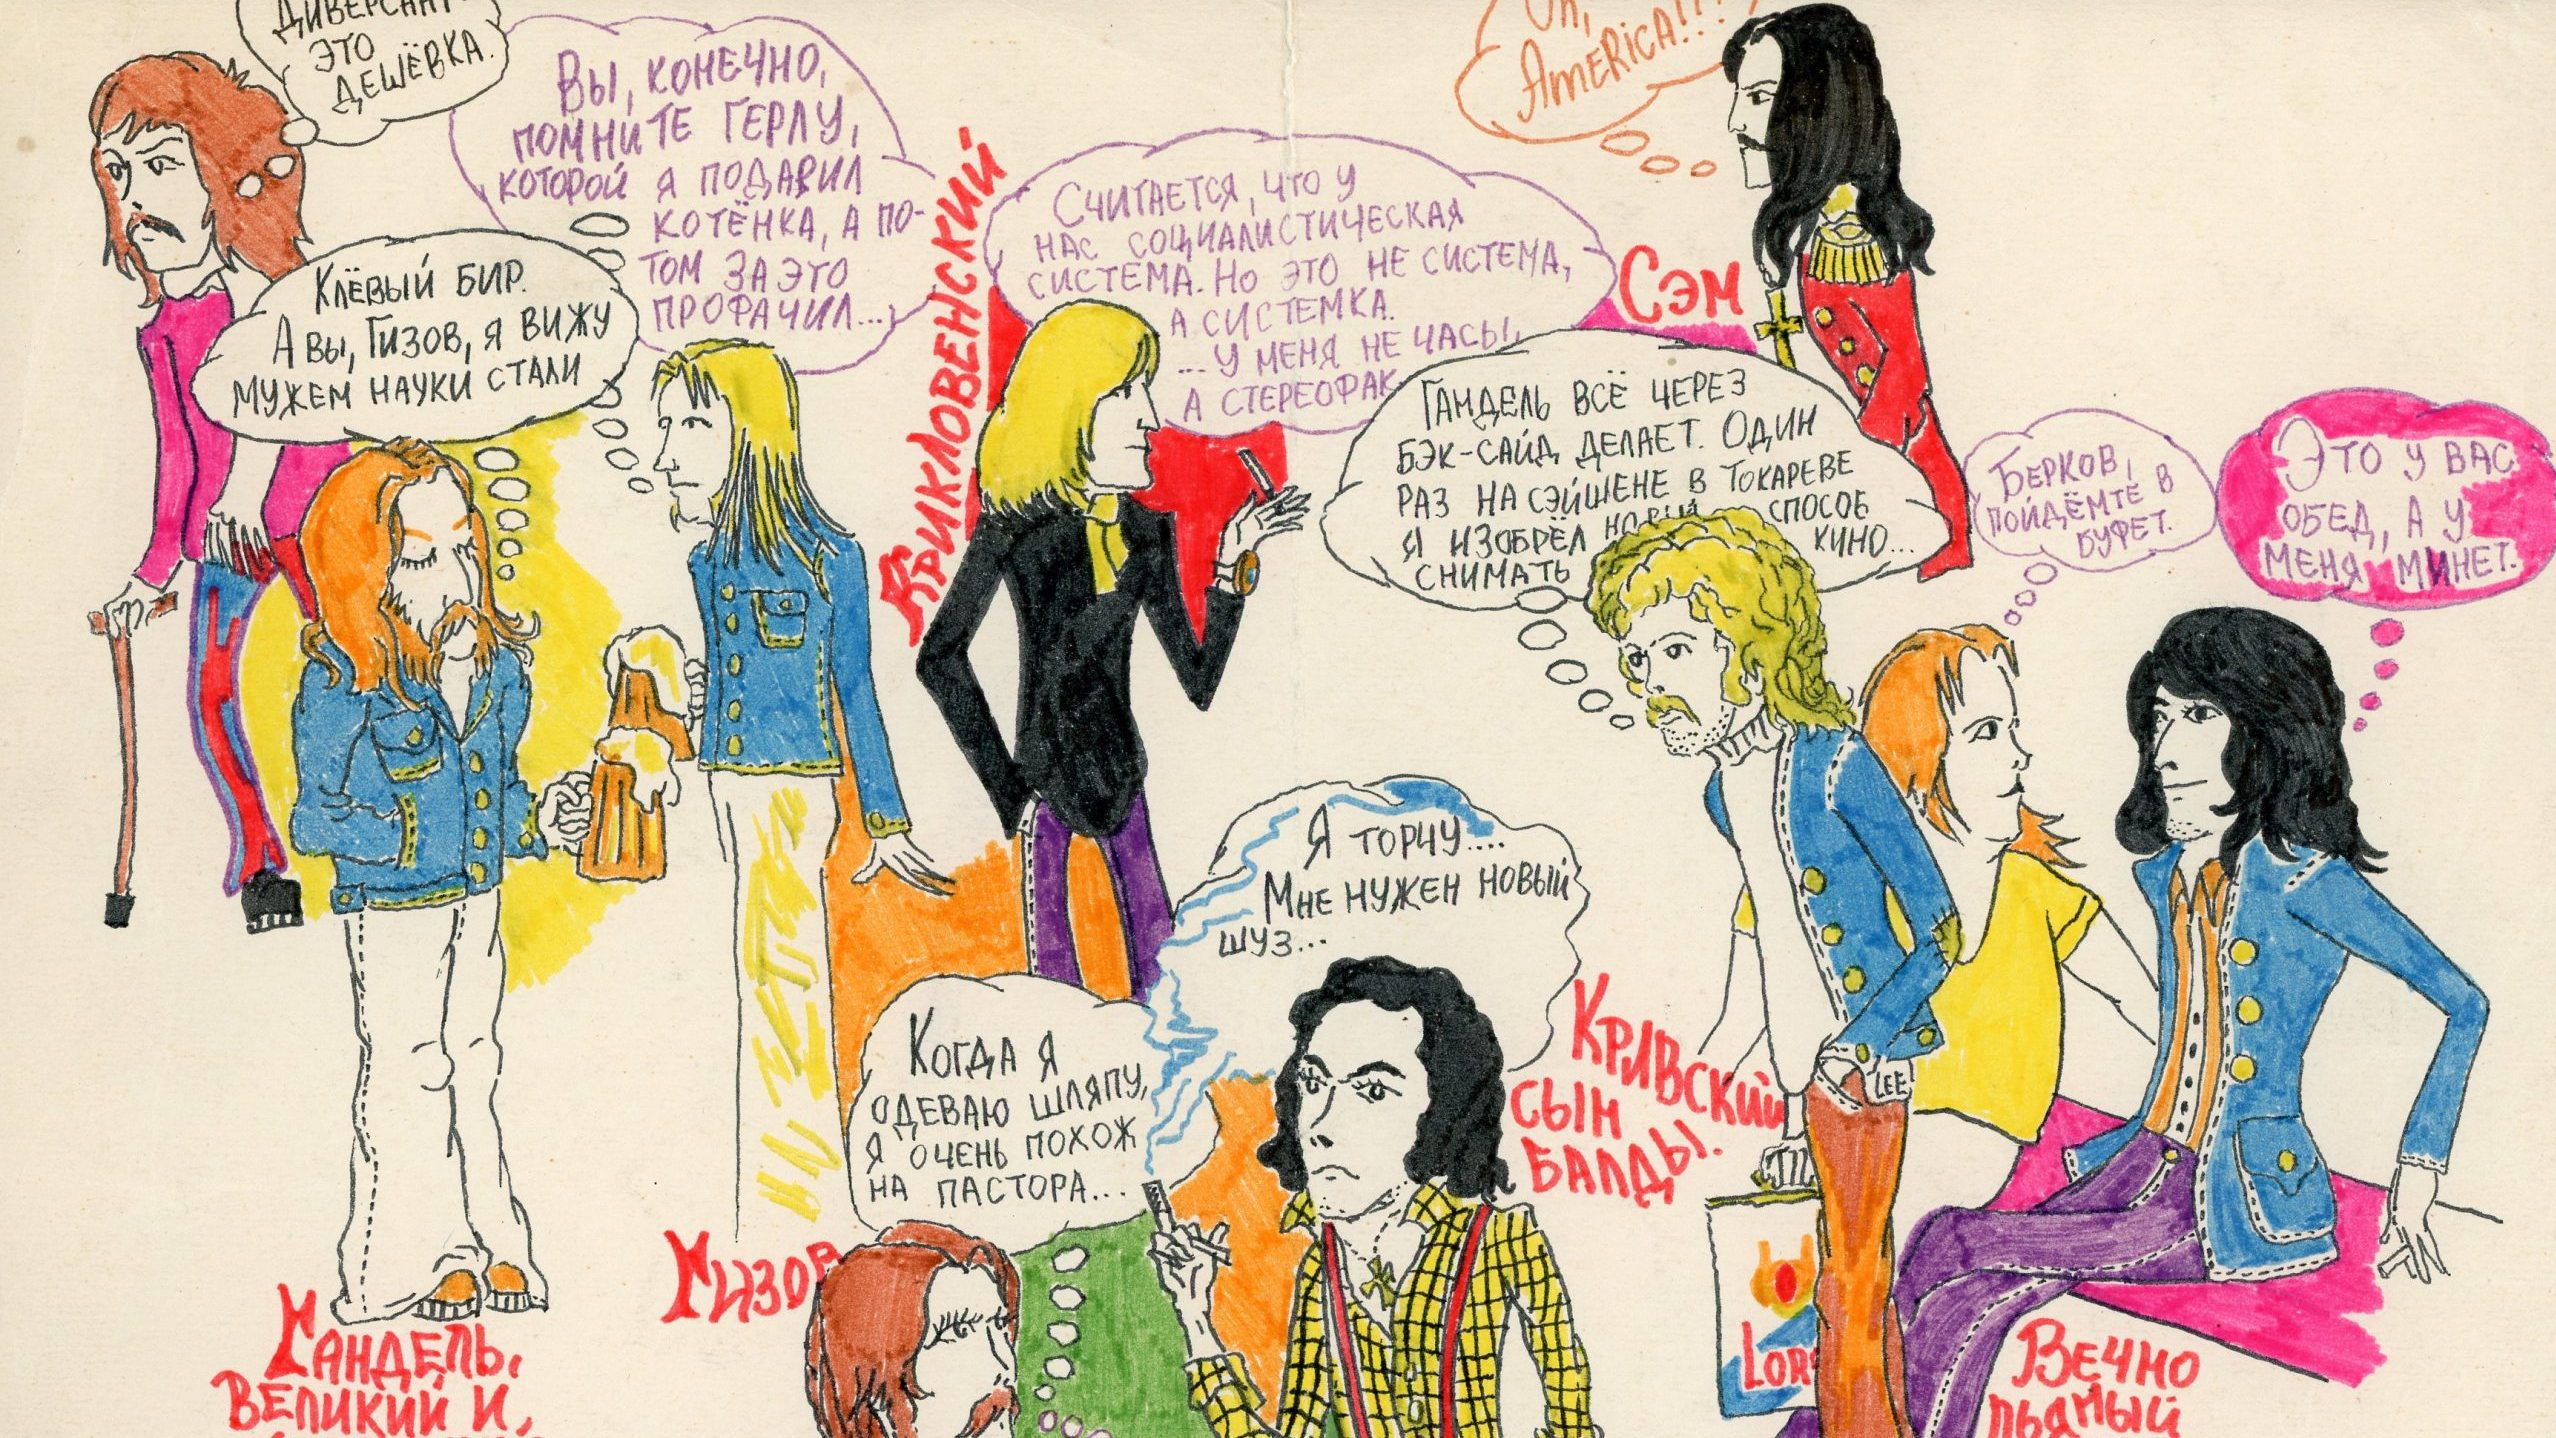 ДИВЕРСАНТ
ЭТО
ДЕШЁВКА.
ВЫ, КОНЕЧНО,
ПОМНИТЕ ГЕРЛУ,
КОТОРОЙ Я ПОДАРИЛ
КОТЁНКА, А ПО-
ТОМ ЗА ЭТО
ПРОФАЧИЛ...
КЛЁВЫЙ БИР.
А ВЫ, ГИЗОВ, Я ВИЖУ
МУЖЕМ НАУКИ СТАЛИ
КРИКЛОВЕНСКИЙ
СЧИТАЕТСЯ, ЧТО У
НАС СОЦИАЛИСТИЧЕСКАЯ
СИСТЕМА. НО ЭТО НЕ СИСТЕМА,
А СИСТЕМКА.
...У МЕНЯ НЕ ЧАСЫ,
А СТЕРЕОФАК
OH,
AMERICA!!!
СЭМ
ГАНДЕЛЬ ВСЁ ЧЕРЕЗ
БЭК-САЙД ДЕЛАЕТ. ОДИН
РАЗ НА СЭЙШЕНЕ В ТОКАРЕВЕ
Я ИЗОБРЁЛ НОВЫЙ СПОСОБ
СНИМАТЬ КИНО...
БЕРКОВ,
ПОЙДЁМТЕ В
БУФЕТ.
ЭТО У ВАС
ОБЕД, А У
МЕНЯ МИНЕТ.
Я ТОРЧУ....
МНЕ НУЖЕН НОВЫЙ
ШУЗ...
КОГДА Я
ОДЕВАЮ ШЛЯПУ,
Я ОЧЕНЬ ПОХОЖ
НА ПАСТОРА...
КРИВСКИЙ
СЫН
БАЛДЫ.
LEE
LORD
ГИЗОВ
ГАНДЕЛЬ,
ВЕЛИКИЙ И,
ВЕЧНО
ПЬЯНЫЙ